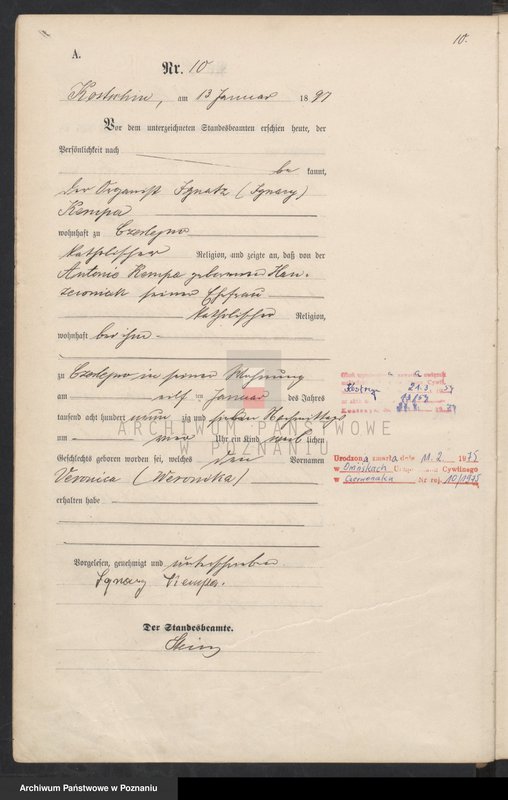 10.
A.
Nr. 10
Kostschin, am 13 Januar 1897
Vor dem unterzeichneten Standesbeamten erschien heute, der
Persönlichkeit nach
be kannt,
der Organist Ignatz (Ignacy)
Kempa
wohnhaft zu Czerlejno
katholischer Religion, und zeigte an, daß von der
Antonie Kempa geborenen
seiner Ehefrau
katholischer Religion,
wohnhaft bei ihm
zu Czerlejno in seiner Wohnung
am elf ten Januar des Jahres
tausend acht hundert neun zig und sieben Nachmittags
um Uhr ein Kind weib lichen
Geschlechts geboren worden sei, welches den Vornamen
Veronica (Weronika)
erhalten habe
Vorgelesen, genehmigt und unterschrieben
Ignacy Kempa.
Der Standesbeamte.
ARCHIWUM PAŃSTWOWE
W POZNANIU
Urodzona zmarła dnia 11.2. 1975
w Urzędu Stanu Cywilnego
w Czerwonaku Nr rej. 10/1975
Archiwum Państwowe w Poznaniu